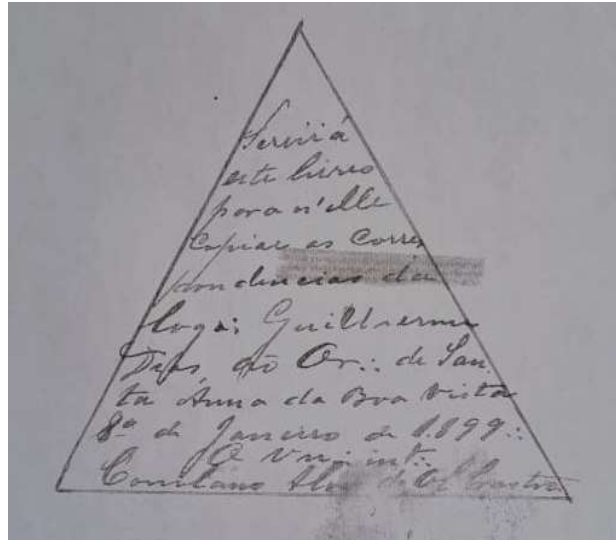 Servirá
este livro
para n'elle
Copiar as Corres
pondencias da
loga: Guilherme
Dias, ao Or.: de San
ta Anna da Boa Vista
8º de Janeiro de 1.899.:
O Vn: int.: